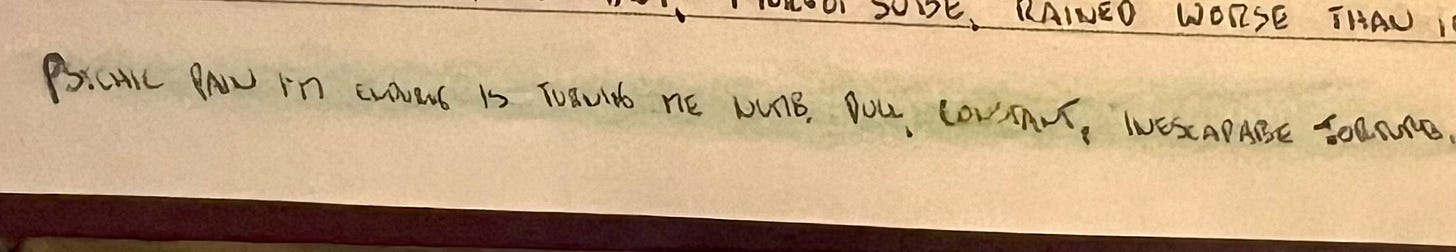 SUDSE. RAINED WORSE THAN
PSYCHIC PAIN I'M ENDURING IS TURNING ME NUMB. DULL, CONSTANT, INESCAPABE TORTURE.